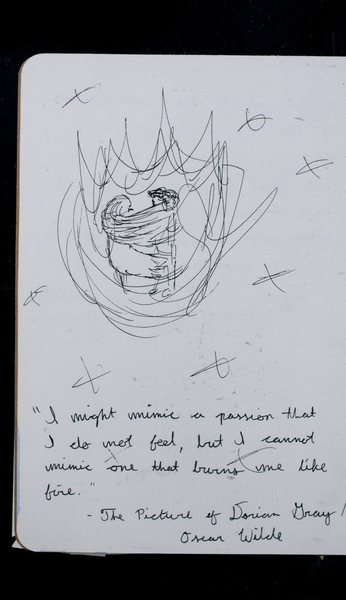 "I might mimic a passion that
I do not feel, but I cannot
mimic one that burns me like
fire."
- The Picture of Dorian Gray /
Oscar Wilde